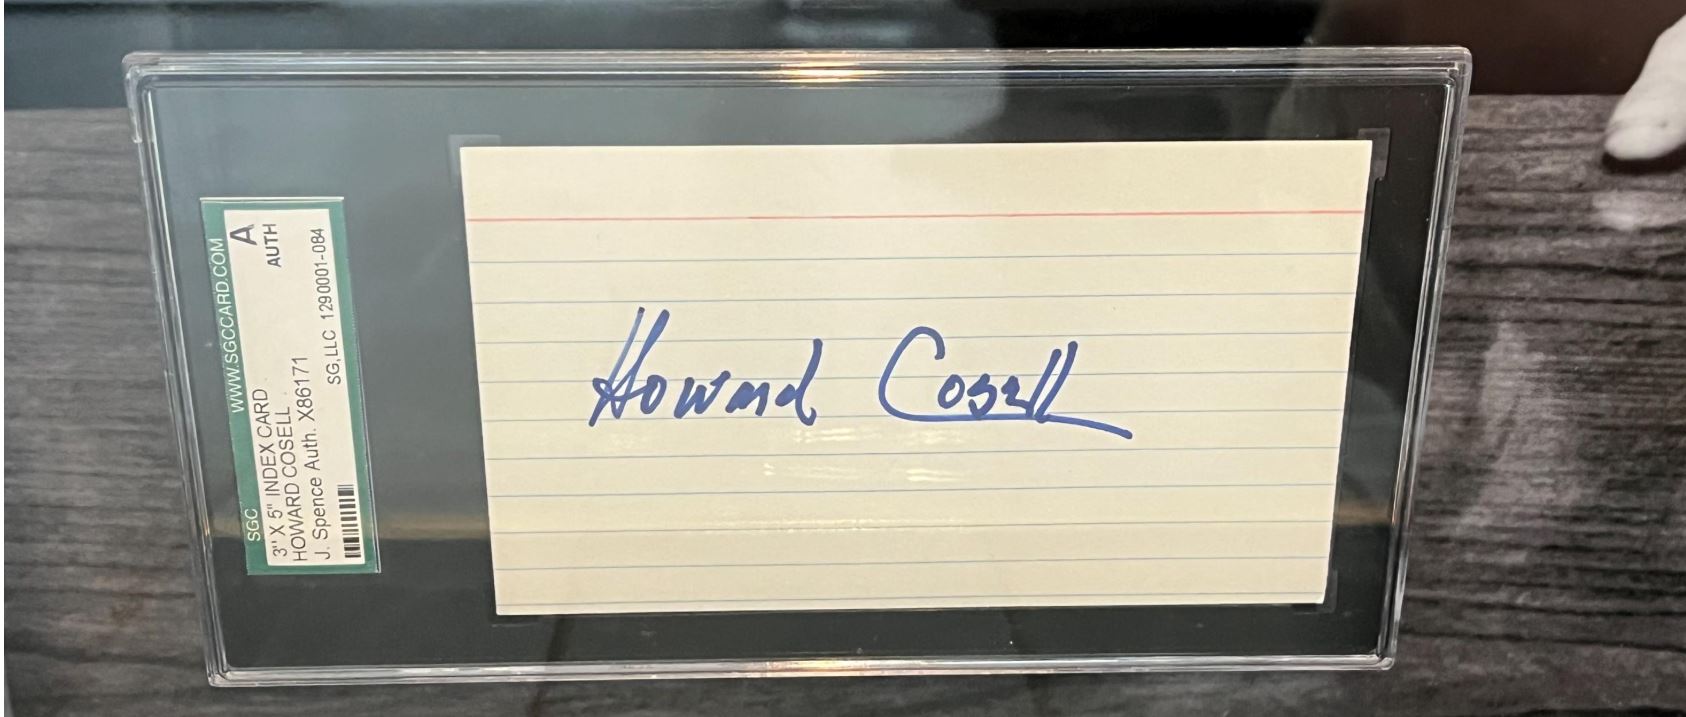 WWW.SGCCARD.COM
SGC
A
AUTH
3" X 5" INDEX CARD
HOWARD COSELL
J. Spence Auth. X86171
SG,LLC 1290001-084
Howard Cosell